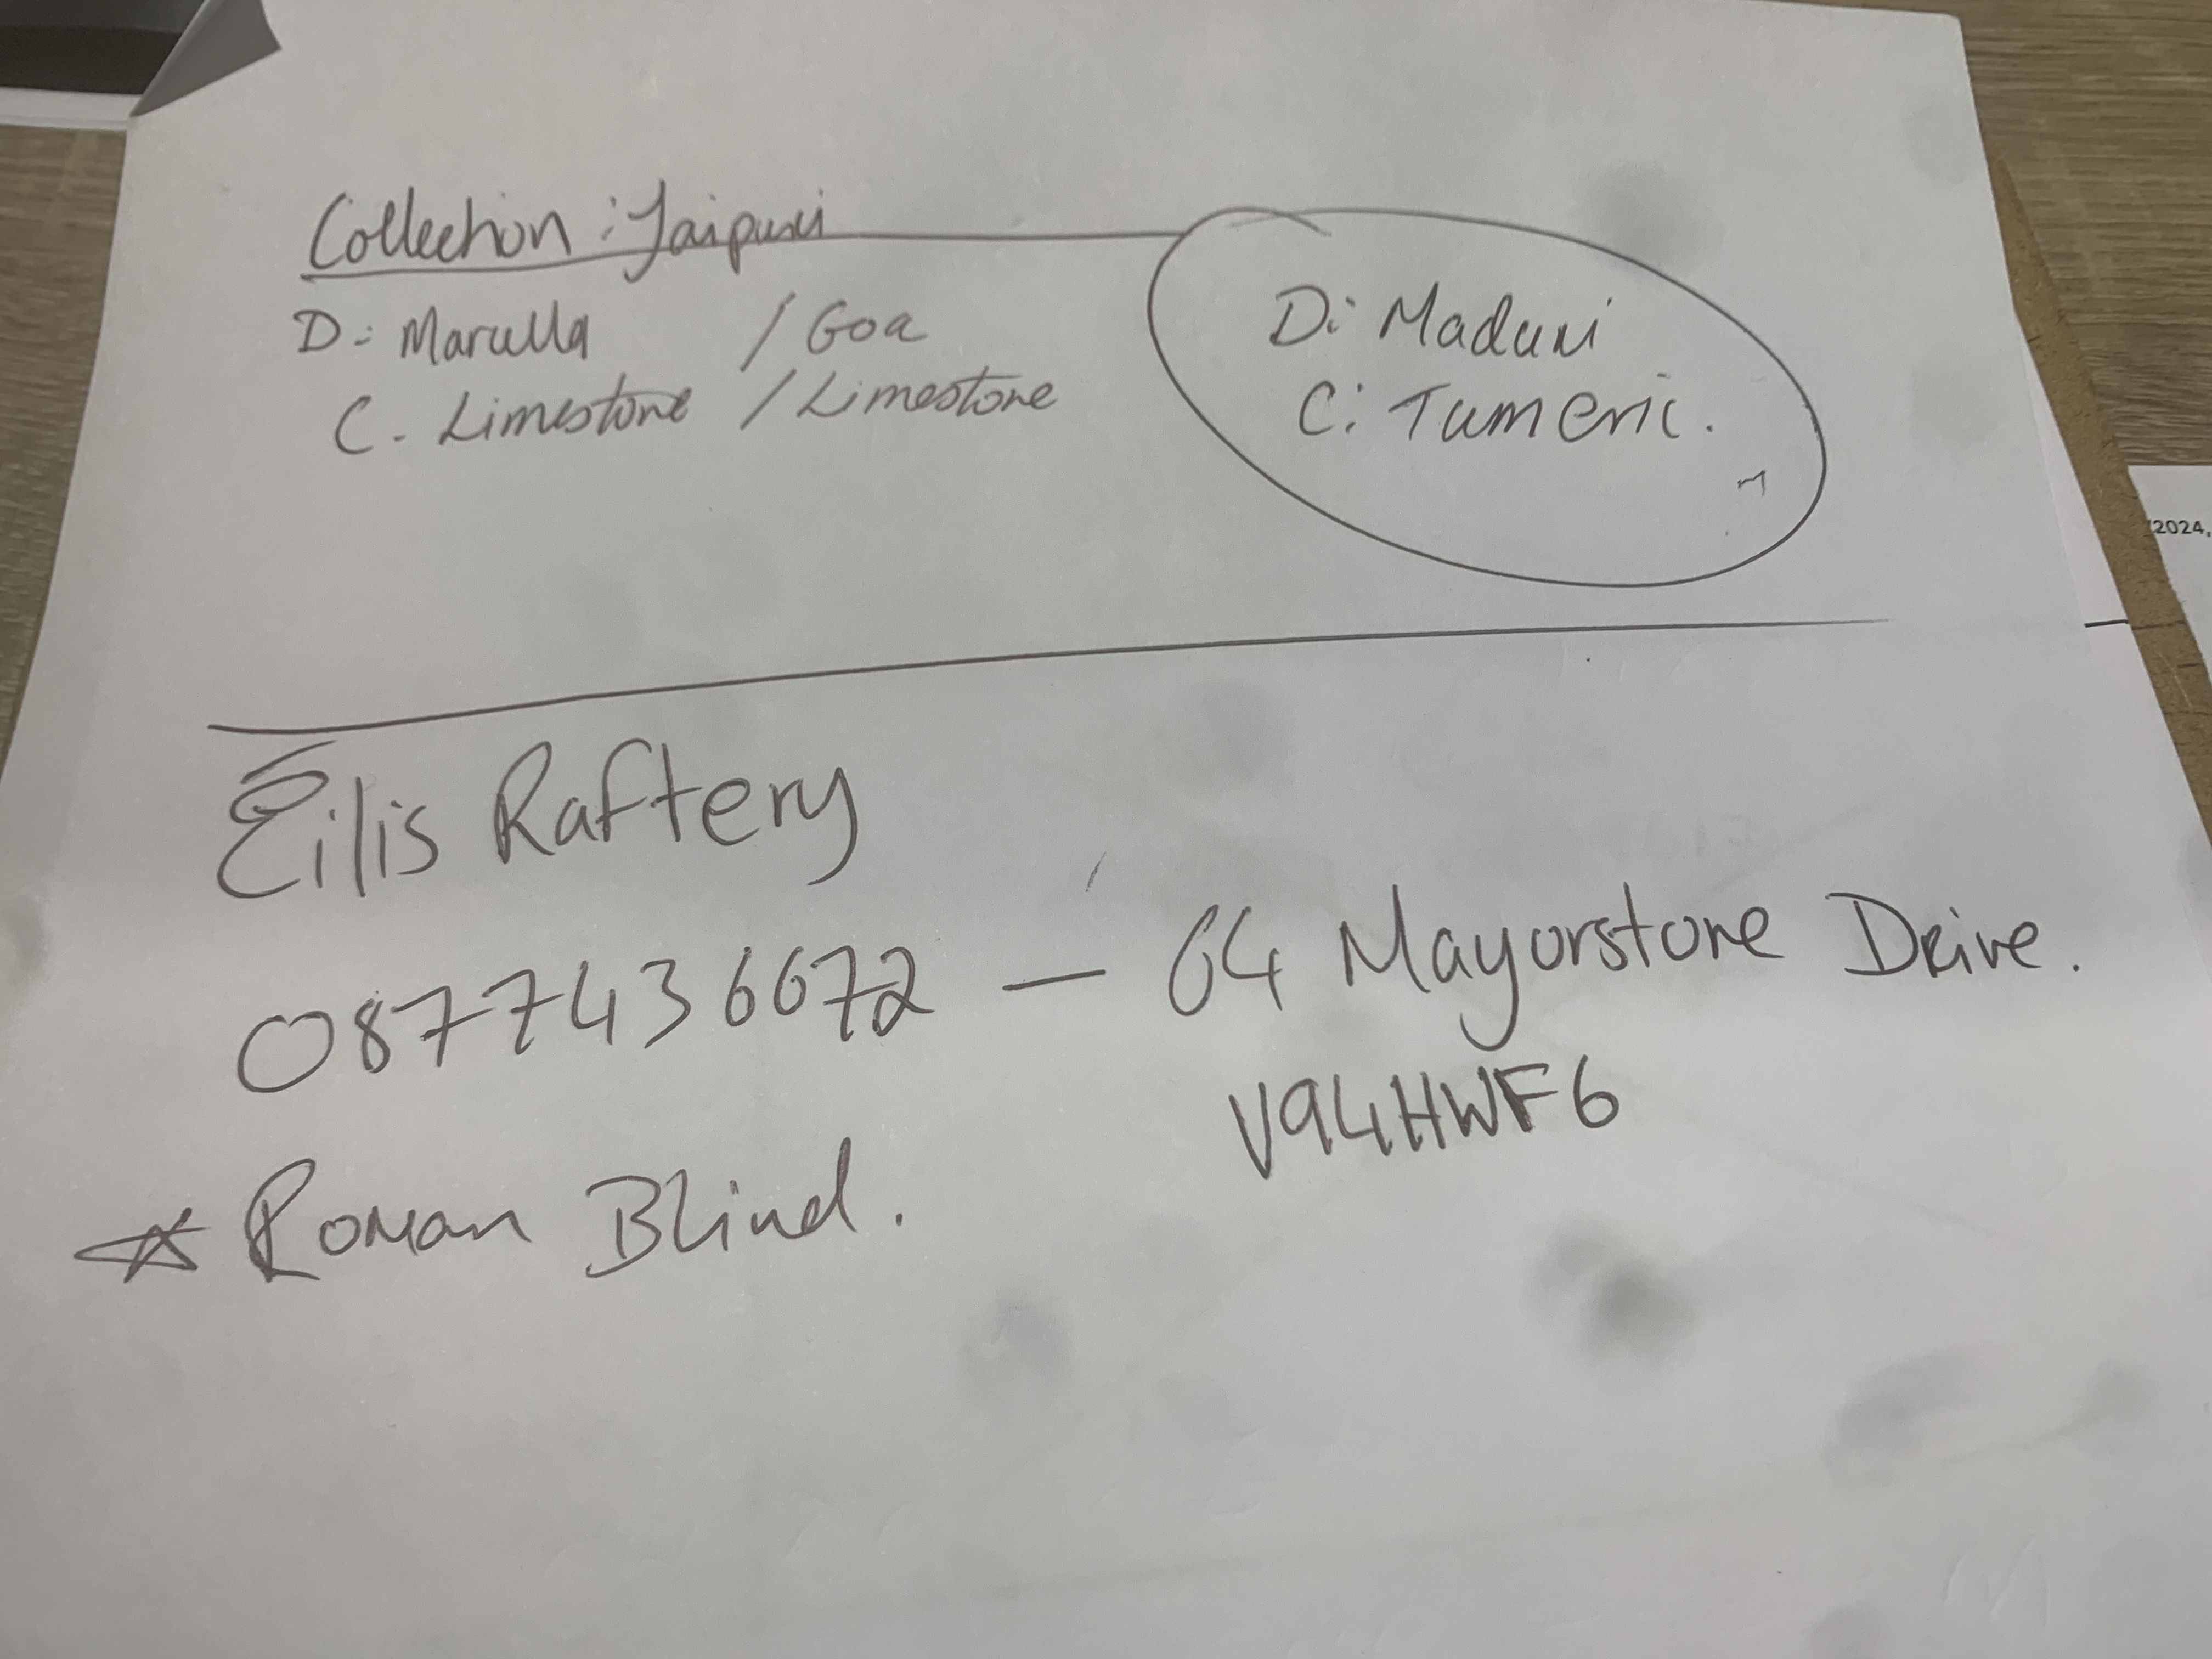 Collection : Jaipuri
D: Marcella / Goa
C. Limestone / Limestone
D: Maduri
C: Tumeric.
2024,
Eilis Raftery
0877436672 — 64 Mayorstone Drive.
V94HWF6
☆ Roman Blind.